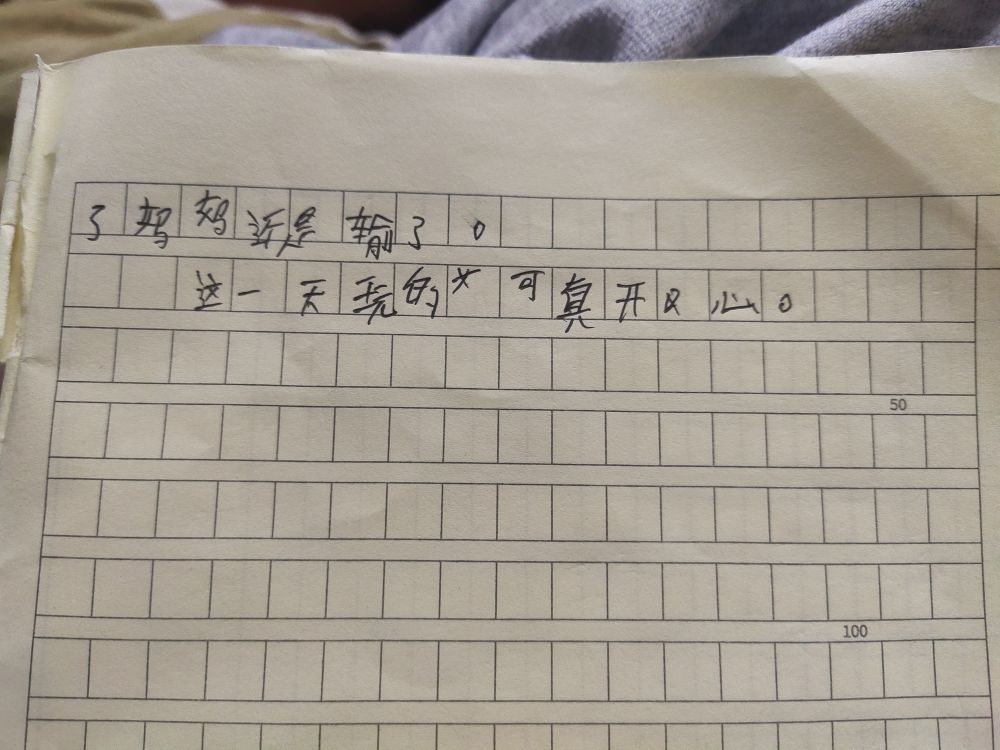 了妈妈还是输了。
这一天玩的 可真开 心。
50
100